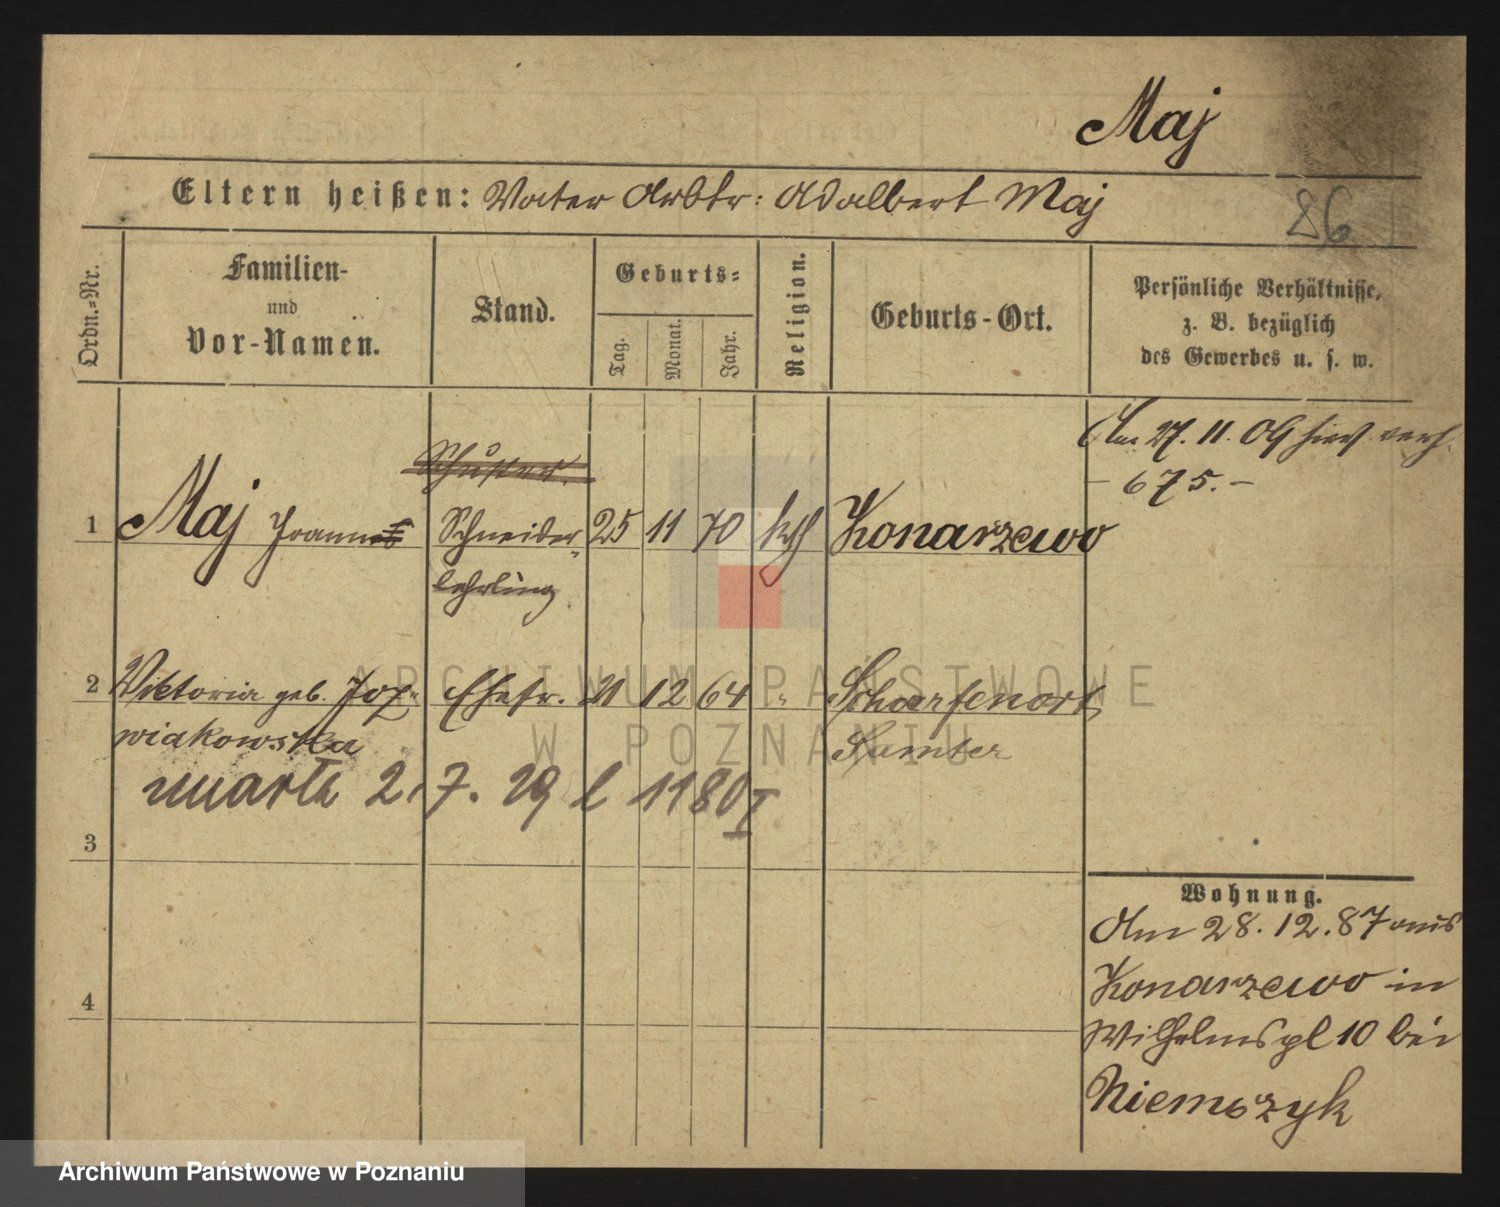 Maj
Eltern heißen: Vater Arbtr: Adalbert Maj
86
Ordn.-Nr.
Familien-
und
Vor-Namen.
Stand.
Geburts-
Tag.
Monat.
Jahr.
Religion.
Geburts-Ort.
Persönliche Verhältnisse,
z. B. bezüglich
des Gewerbes u. s. w.
Am 27. 11. 09 hier verh.
- 675. -
Schuster.
1 Maj Johann Schneider- 25 11 70 kth Konarzewo
lehrling
2 Viktoria geb. Joz- Ehefr. 21 12 64 " Scharfenort
wiakowska Samter
umarła 2. 7. 29 l 1180 I
3
4
Wohnung.
Am 28. 12. 87 aus
Konarzewo in
Wilhelmspl 10 bei
Niemczyk
ARCHIWUM PAŃSTWOWE
W POZNANIU
Archiwum Państwowe w Poznaniu